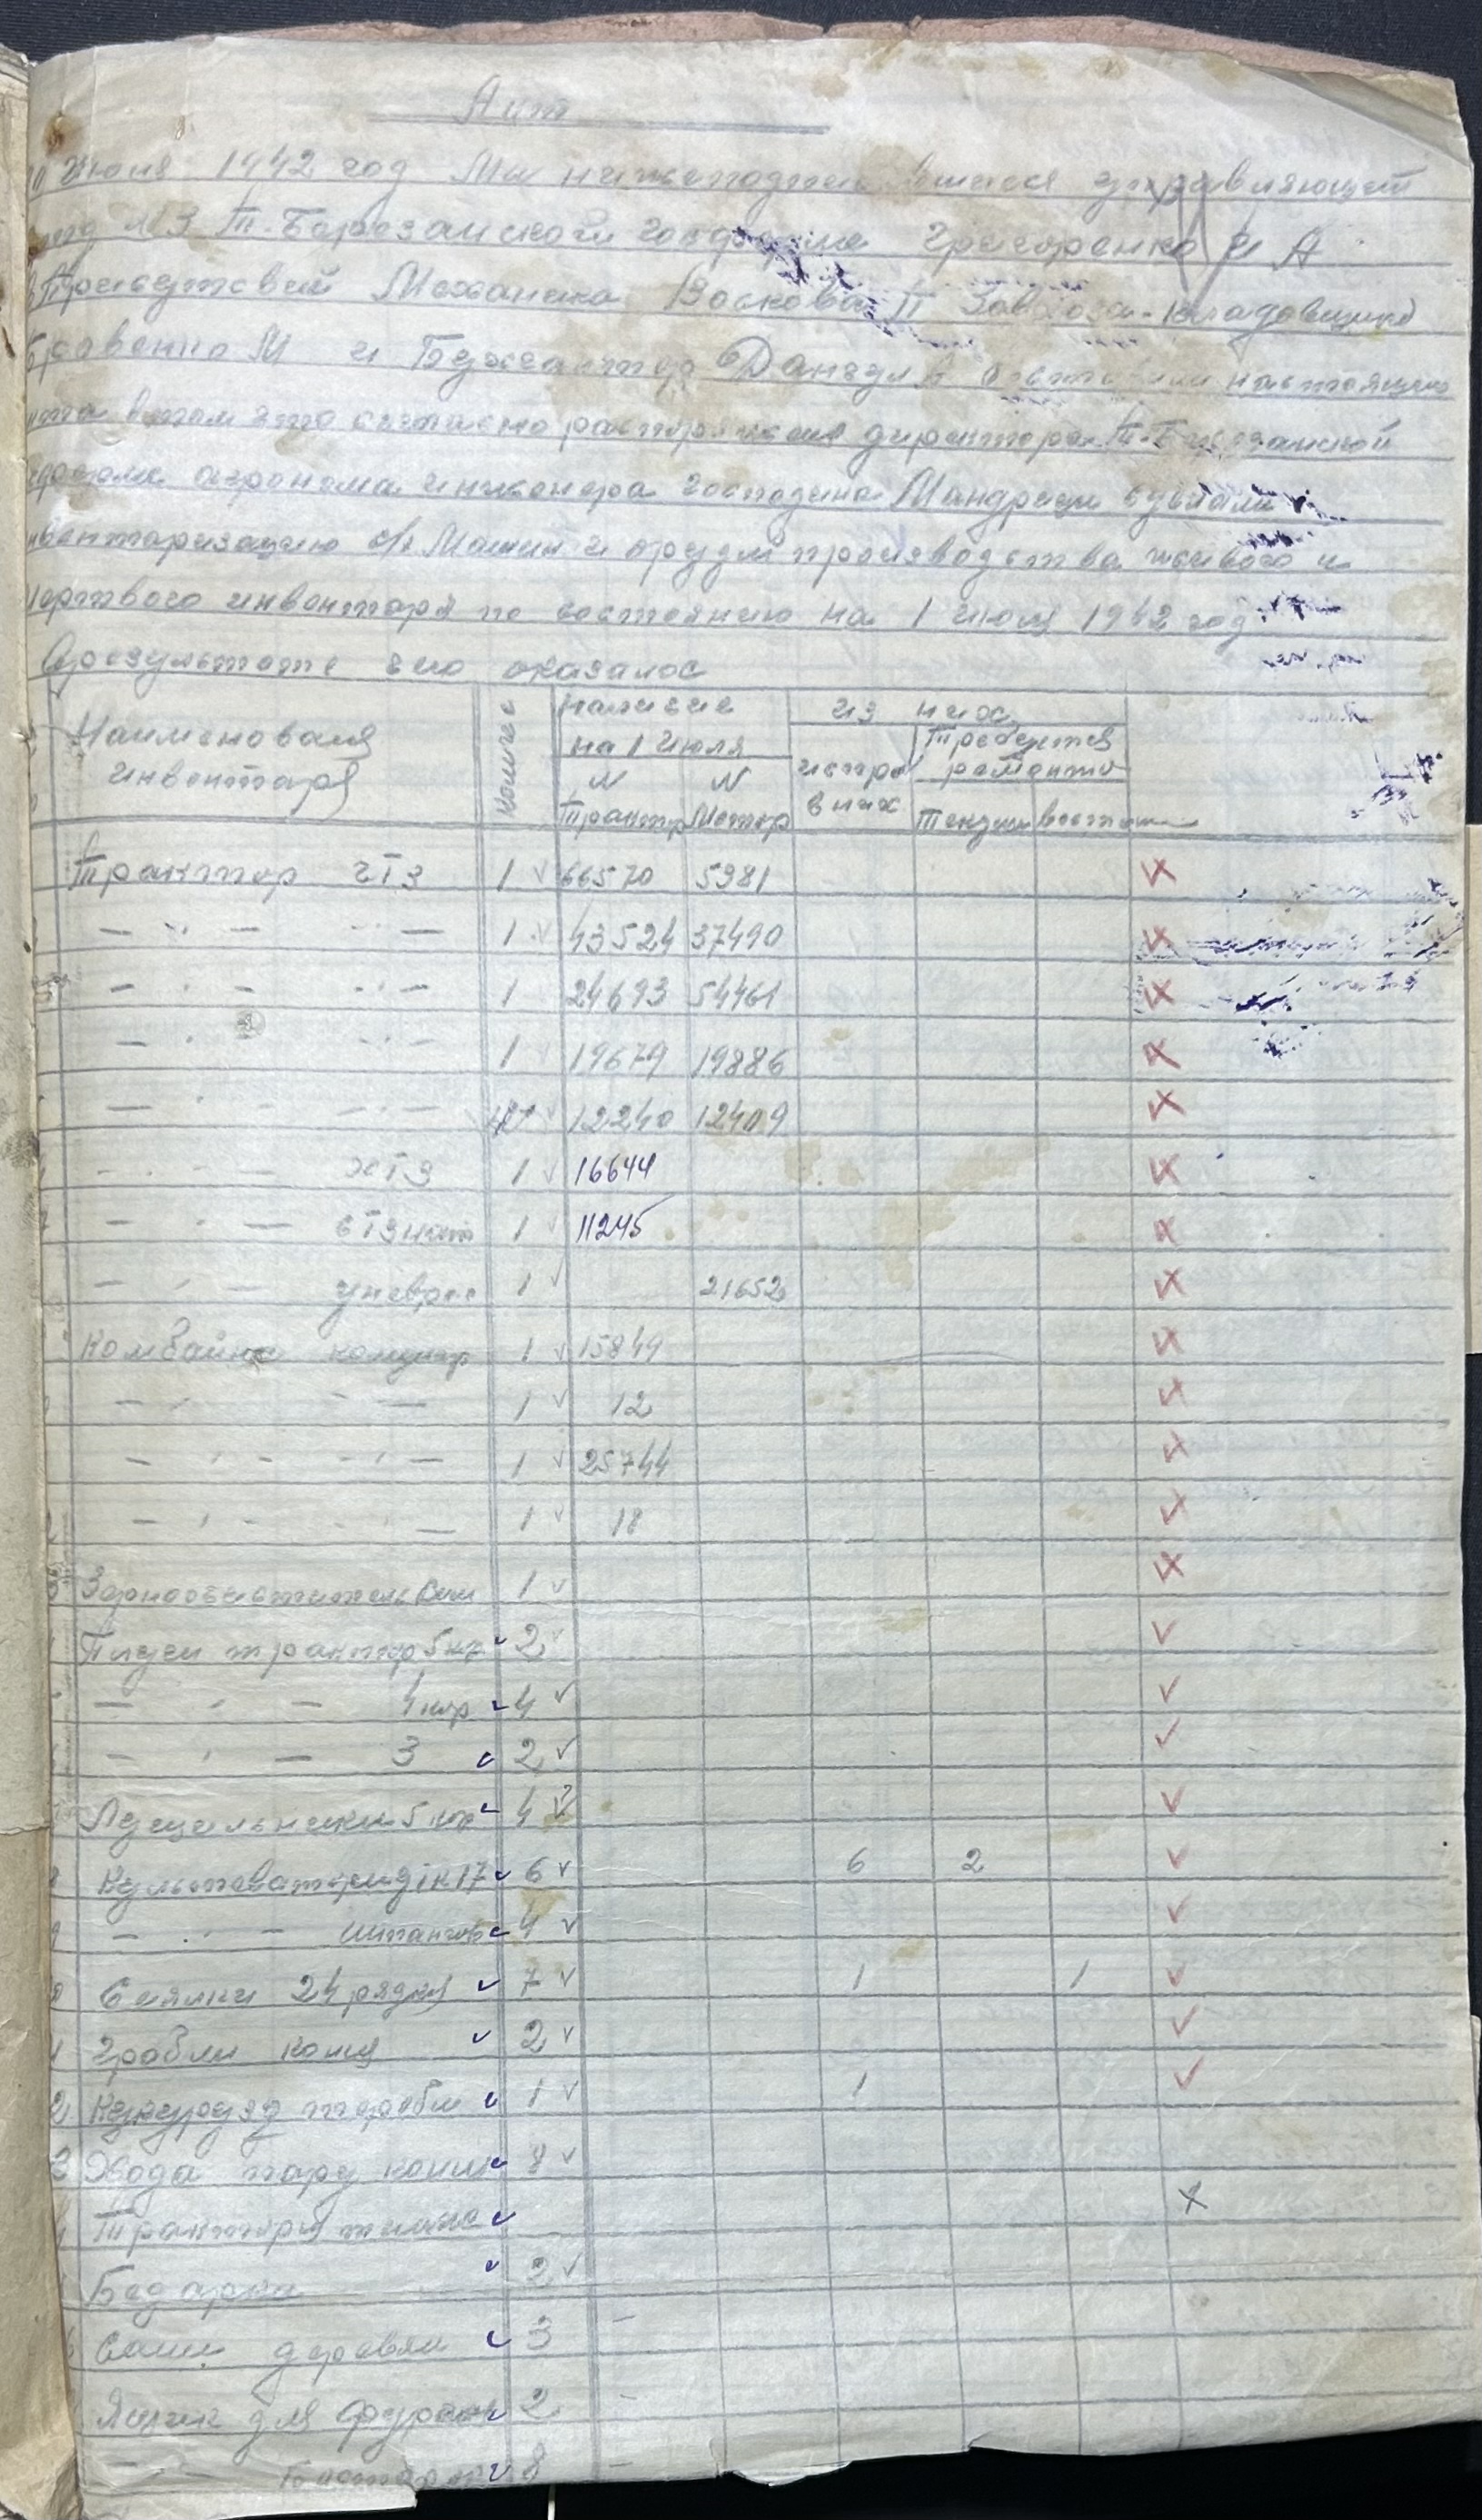 Акт
Июля 1942 год Мы нижеподписавшися управляющий
№3 Т-Березанского Госдормие Григоренко И А
Присутствей Механика Воскова П Завхоза-кладовщика
М и Бухгалтор Дангул А составили настоящего
акта в том что согласно распоряжения директора Т-Березанской
агронома инженера господина Мандрици сделали
инвентаризацию с/х Машин и орудий производства живого и
мертвого инвентаря по состоянию на 1 июля 1942 год
В результате чего оказалос
Наименования инвентаря Количес наличие на 1 Июля из них
N Трактор N Мотор исправных Требуется ремонта
Текущи восстан
Трактор ЧТЗ 1 66570 5981
— " — " — 1 43524 37490
— " — " — 1 24693 54461
— " — " — 1 19679 19886
— " — " — 1 12240 12409
— " — ХТЗ 1 16644
— " — СТЗ нат 1 11245
— " — универс 1 21652
Комбайна комунар 1 15849
— " — " — 1 12
— " — " — 1 25744
— " — " — 1 18
Зерноочиститель 1
Плуги трактор 5 кор 2
— " — 4 кор 4
— " — 3 2
Лущильники 5 кор 4
Культиваторы 17 6 6 2
— " — штангов 4
Сеялки 24 рядкы 7 1 1
Гробли конкы 2
Кукурудз 1 1
Хода пару конни 8
Трактора
Бедарки 2
Сани деревян 3
Ящик для фурман 2
— " — 8